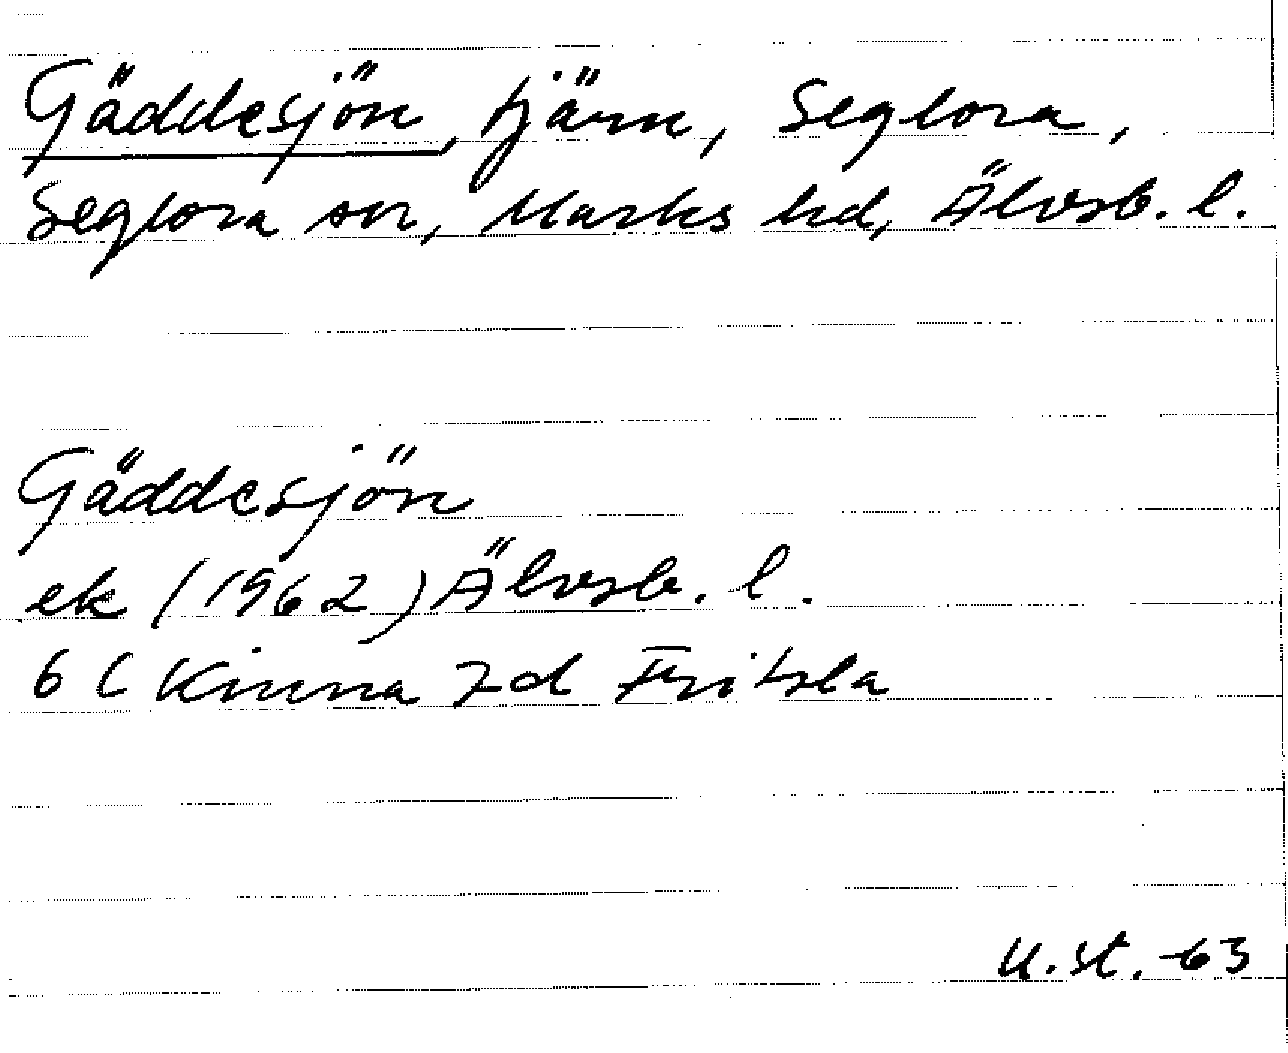 Gäddesjön, tjärn, Seglora,
Seglora sn, Marks hd, Älvsb. l.
Gäddesjön
ek (1962) Älvsb. l.
6 C Kinna 7d Fritsla
U.st. -63